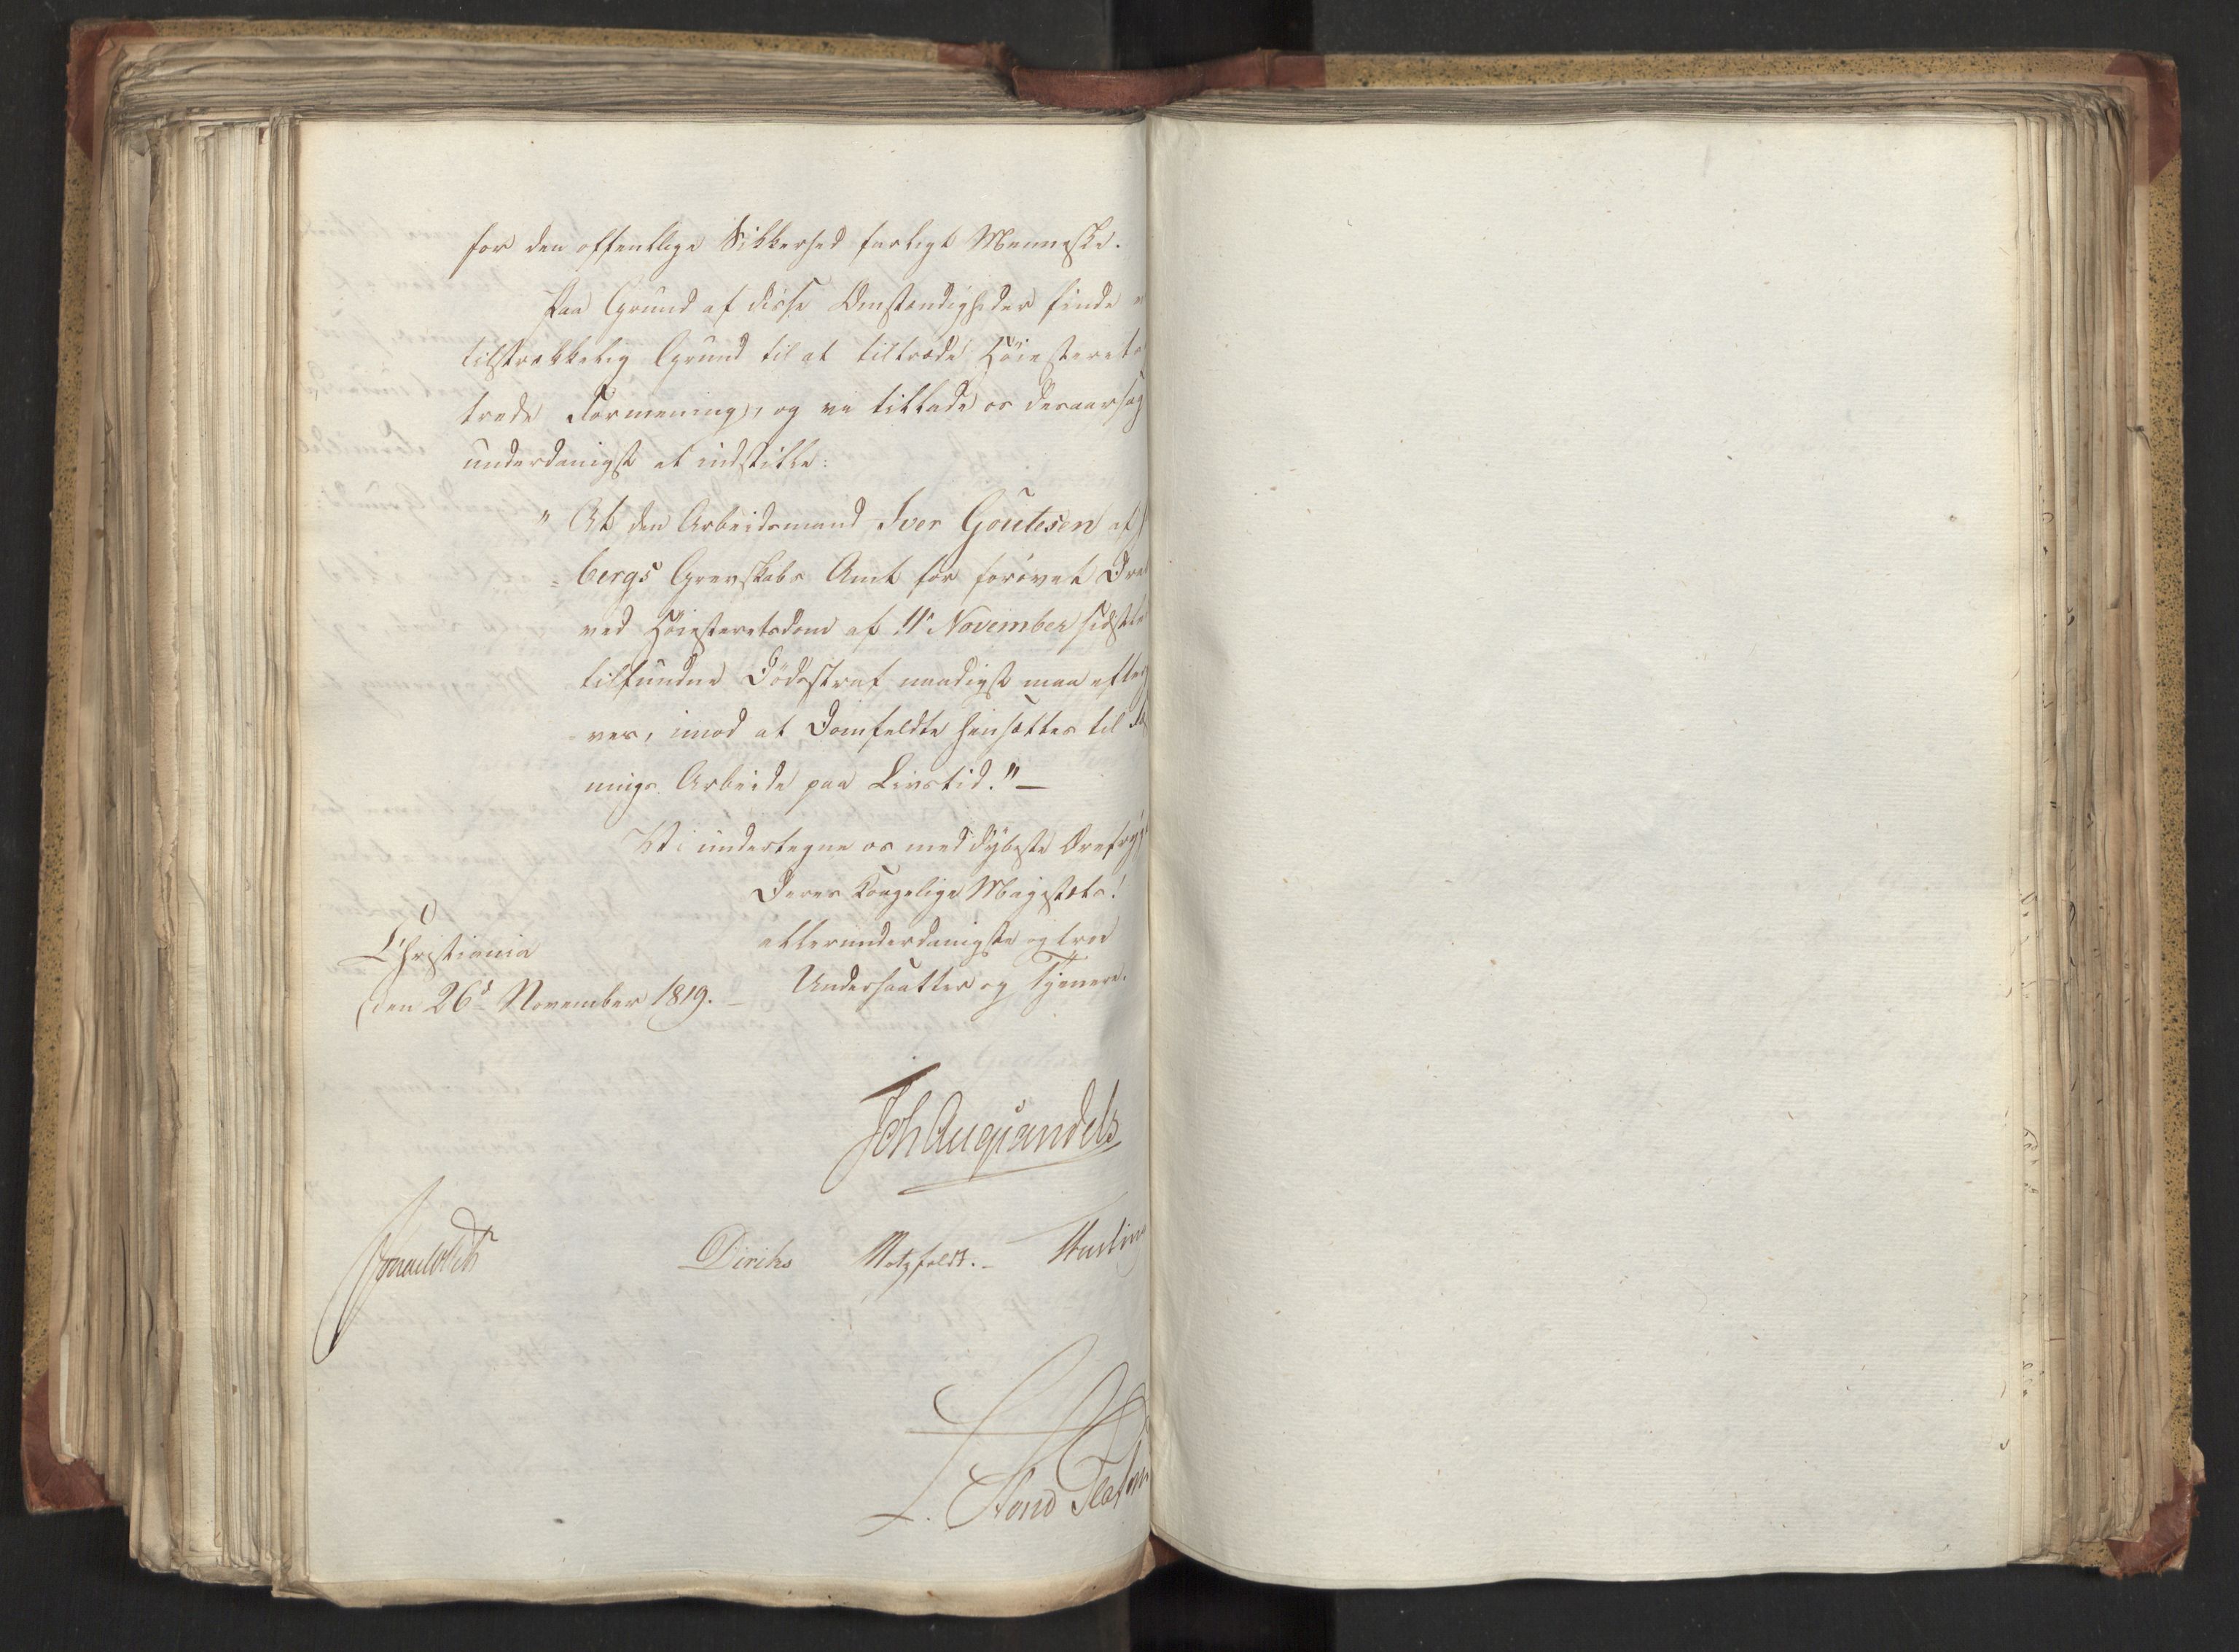 for den offentlige Sikkerhed farligt Menneske.
Paa Grund af disse Omstændigheder finde
tilstrækkelig Grund til at tiltræde Höiesteret
trede Formening, og vi tillade os desaarsag
underdanigst at indstille:
" At den Arbeidsmand Iver Goutesen af
= bergs Grevskabs Amt for forövet Dra
ved Höiesteretsdom af 11te November sidstl
tilfundne Dödsstraf naadigst maa efter
ves, imod at Domfeldte hensættes til
nings Arbeide paa Livstid." —
Vi undertegne os med dybeste Ærefryg
Deres Kongelige Majestæts!
allerunderdanigste og troe
Christiania
Undersaatter og Tjenere.
den 26d November 1819. —
Joh Aug Sandels
Sommerhielm
Diriks Motzfeldt. — Fasting
L. Arnd Fleischer